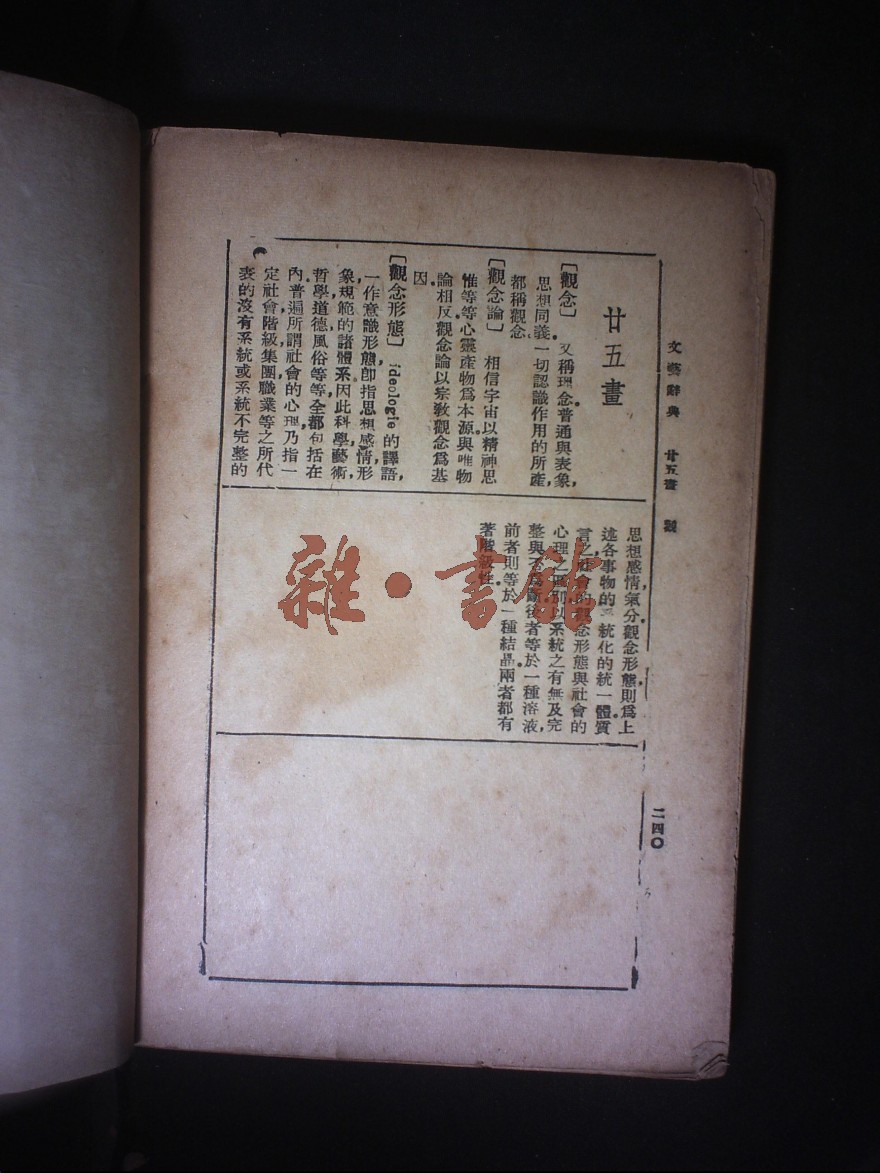 文藝辭典 廿五畫 觀
二四〇
廿五畫
〔觀念〕 又稱理念普通與表象，
思想同義一切認識作用的所產，
都稱觀念。
〔觀念論〕 相信宇宙以精神思
惟等等心靈產物爲本源。與唯物
論相反觀念論以宗敎觀念爲基
因。
〔觀念形態〕 ideologie的譯語，
一作意識形態，卽指思想感情，形
象規範的諸體系。因此科學，藝術，
哲學，道德風俗等等，全都包括在
內。普遍所謂社會的心理，乃指一
定社會階級集團，職業等之所代
表的沒有系統或系統不完整的
思想感情，氣分。觀念形態，則爲上
述各事物的系統化的統一體。質
言之，社會的觀念形態與社會的
心理之區別以系統之有無及完
整與否爲斷。後者等於一種溶液，
前者則等於一種結晶。兩者都有
著階級性。
雜·書館